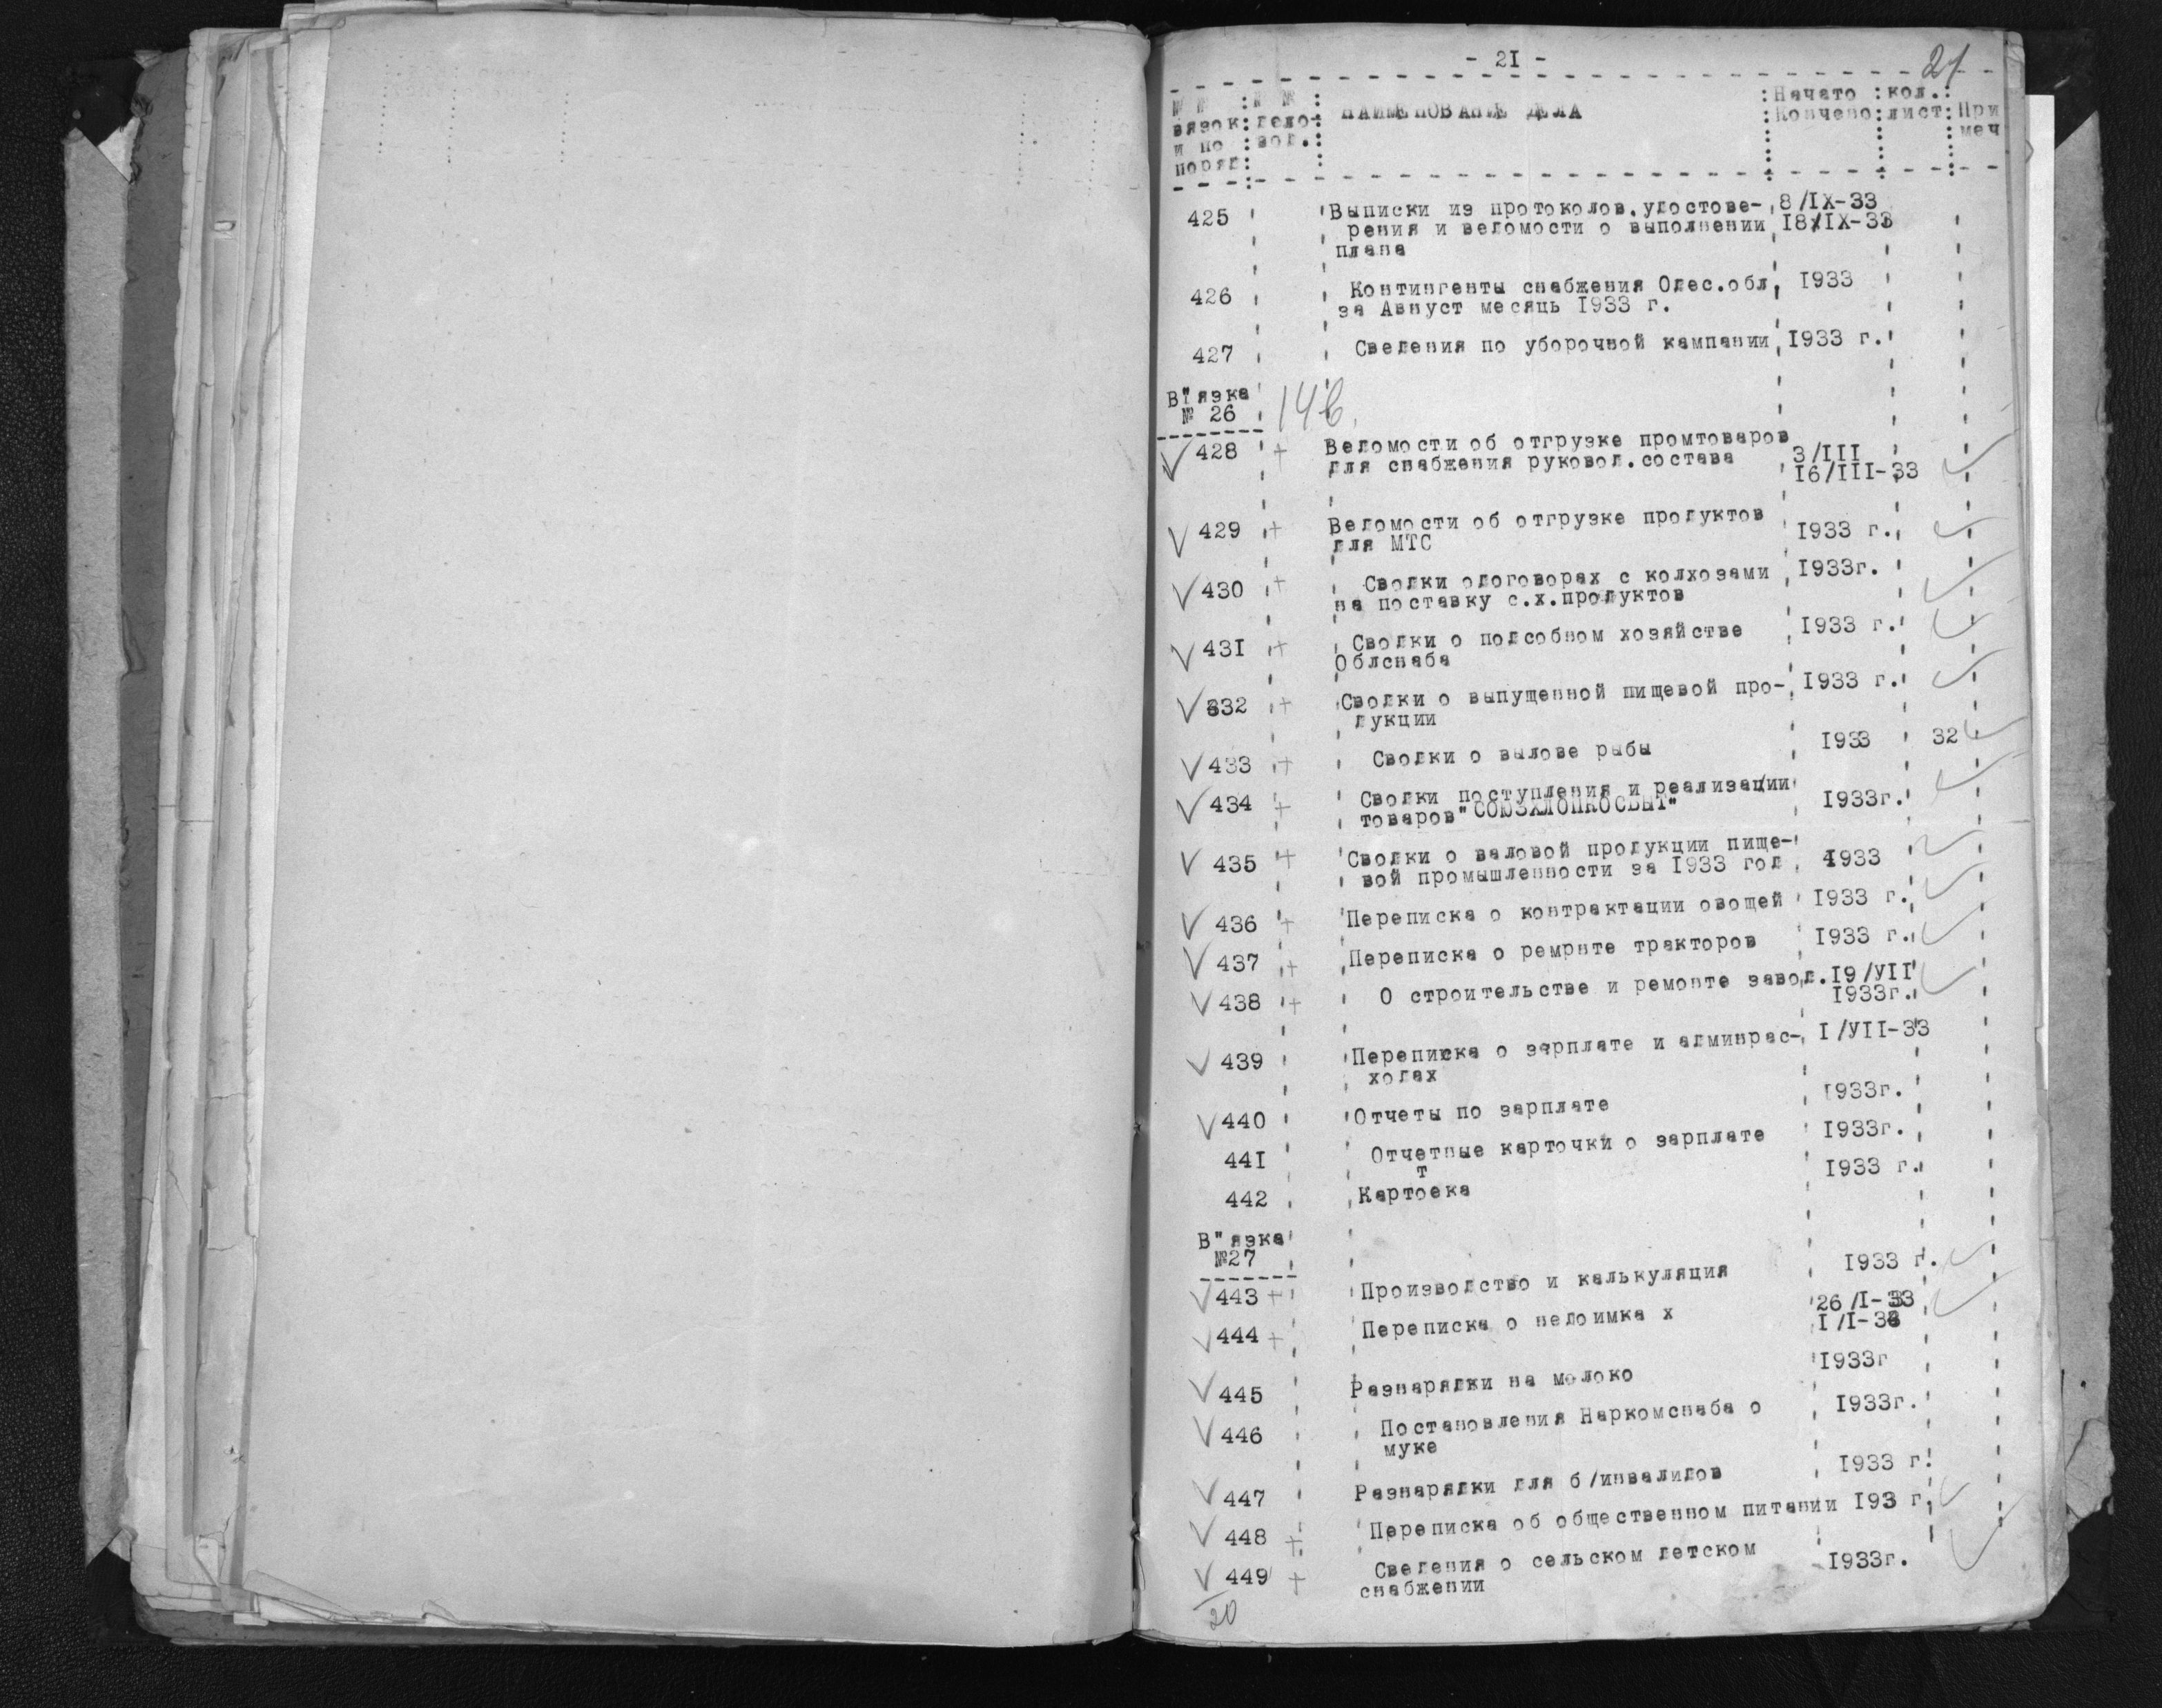 - 2I -
21
№ № : № № : НАИМЕНОВАНИЕ ДЕЛА : Начато : кол. :
вязок : дело- : : Кончено : лист : При
и по : вод. : меч
поряд :
425 Выписки из протоколов.удостове- 8/IX-33
рения и ведомости о выполнении I8/IX-33
плана
426 Контингенты снабжения Одес.обл I933
за Авнуст месяць I933 г.
427 Сведения по уборочной кампании I933 г.
В"язка
№ 26
428 + Ведомости об отгрузке промтоваров
для снабжения руковод.состава 3/III
I6/III-33
429 + Ведомости об отгрузке продуктов
для МТС I933 г.
430 + Сводки одоговорах с колхозами I933г.
на поставку с.х.продуктов
43I + Сводки о подсобном хозяйстве I933 г.
Облснаба
332 + Сводки о выпущенной пищевой про- I933 г.
дукции
433 + Сводки о вылове рыбы I933 32
434 + Сводки поступления и реализации
товаров"СОЮЗХЛОПКОСБЫТ" I933г.
435 + Сводки о валовой продукции пище-
вой промышленности за I933 год I933
436 + Переписка о контрактации овощей I933 г.
437 + Переписка о ремрнте тракторов I933 г.
438 + О строительстве и ремонте завод. I9/УII
I933г.
439 Переписка о зарплате и админрас- I/УII-33
ходах
440 Отчеты по зарплате I933г.
44I Отчетные карточки о зарплате I933г.
т
442 Картоека I933 г.
В"язка
№27
443 + Производство и калькуляция I933 г.
444 + Переписка о недоимка х 26/I-33
I/I-33
445 Разнарядки на молоко I933г
446 Постановления Наркомснаба о I933г.
муке
447 Разнарядки для б/инвалидов I933 г.
448 + Переписка об общественном питании I93 г.
449 + Сведения о сельском детском I933г.
снабжении
20